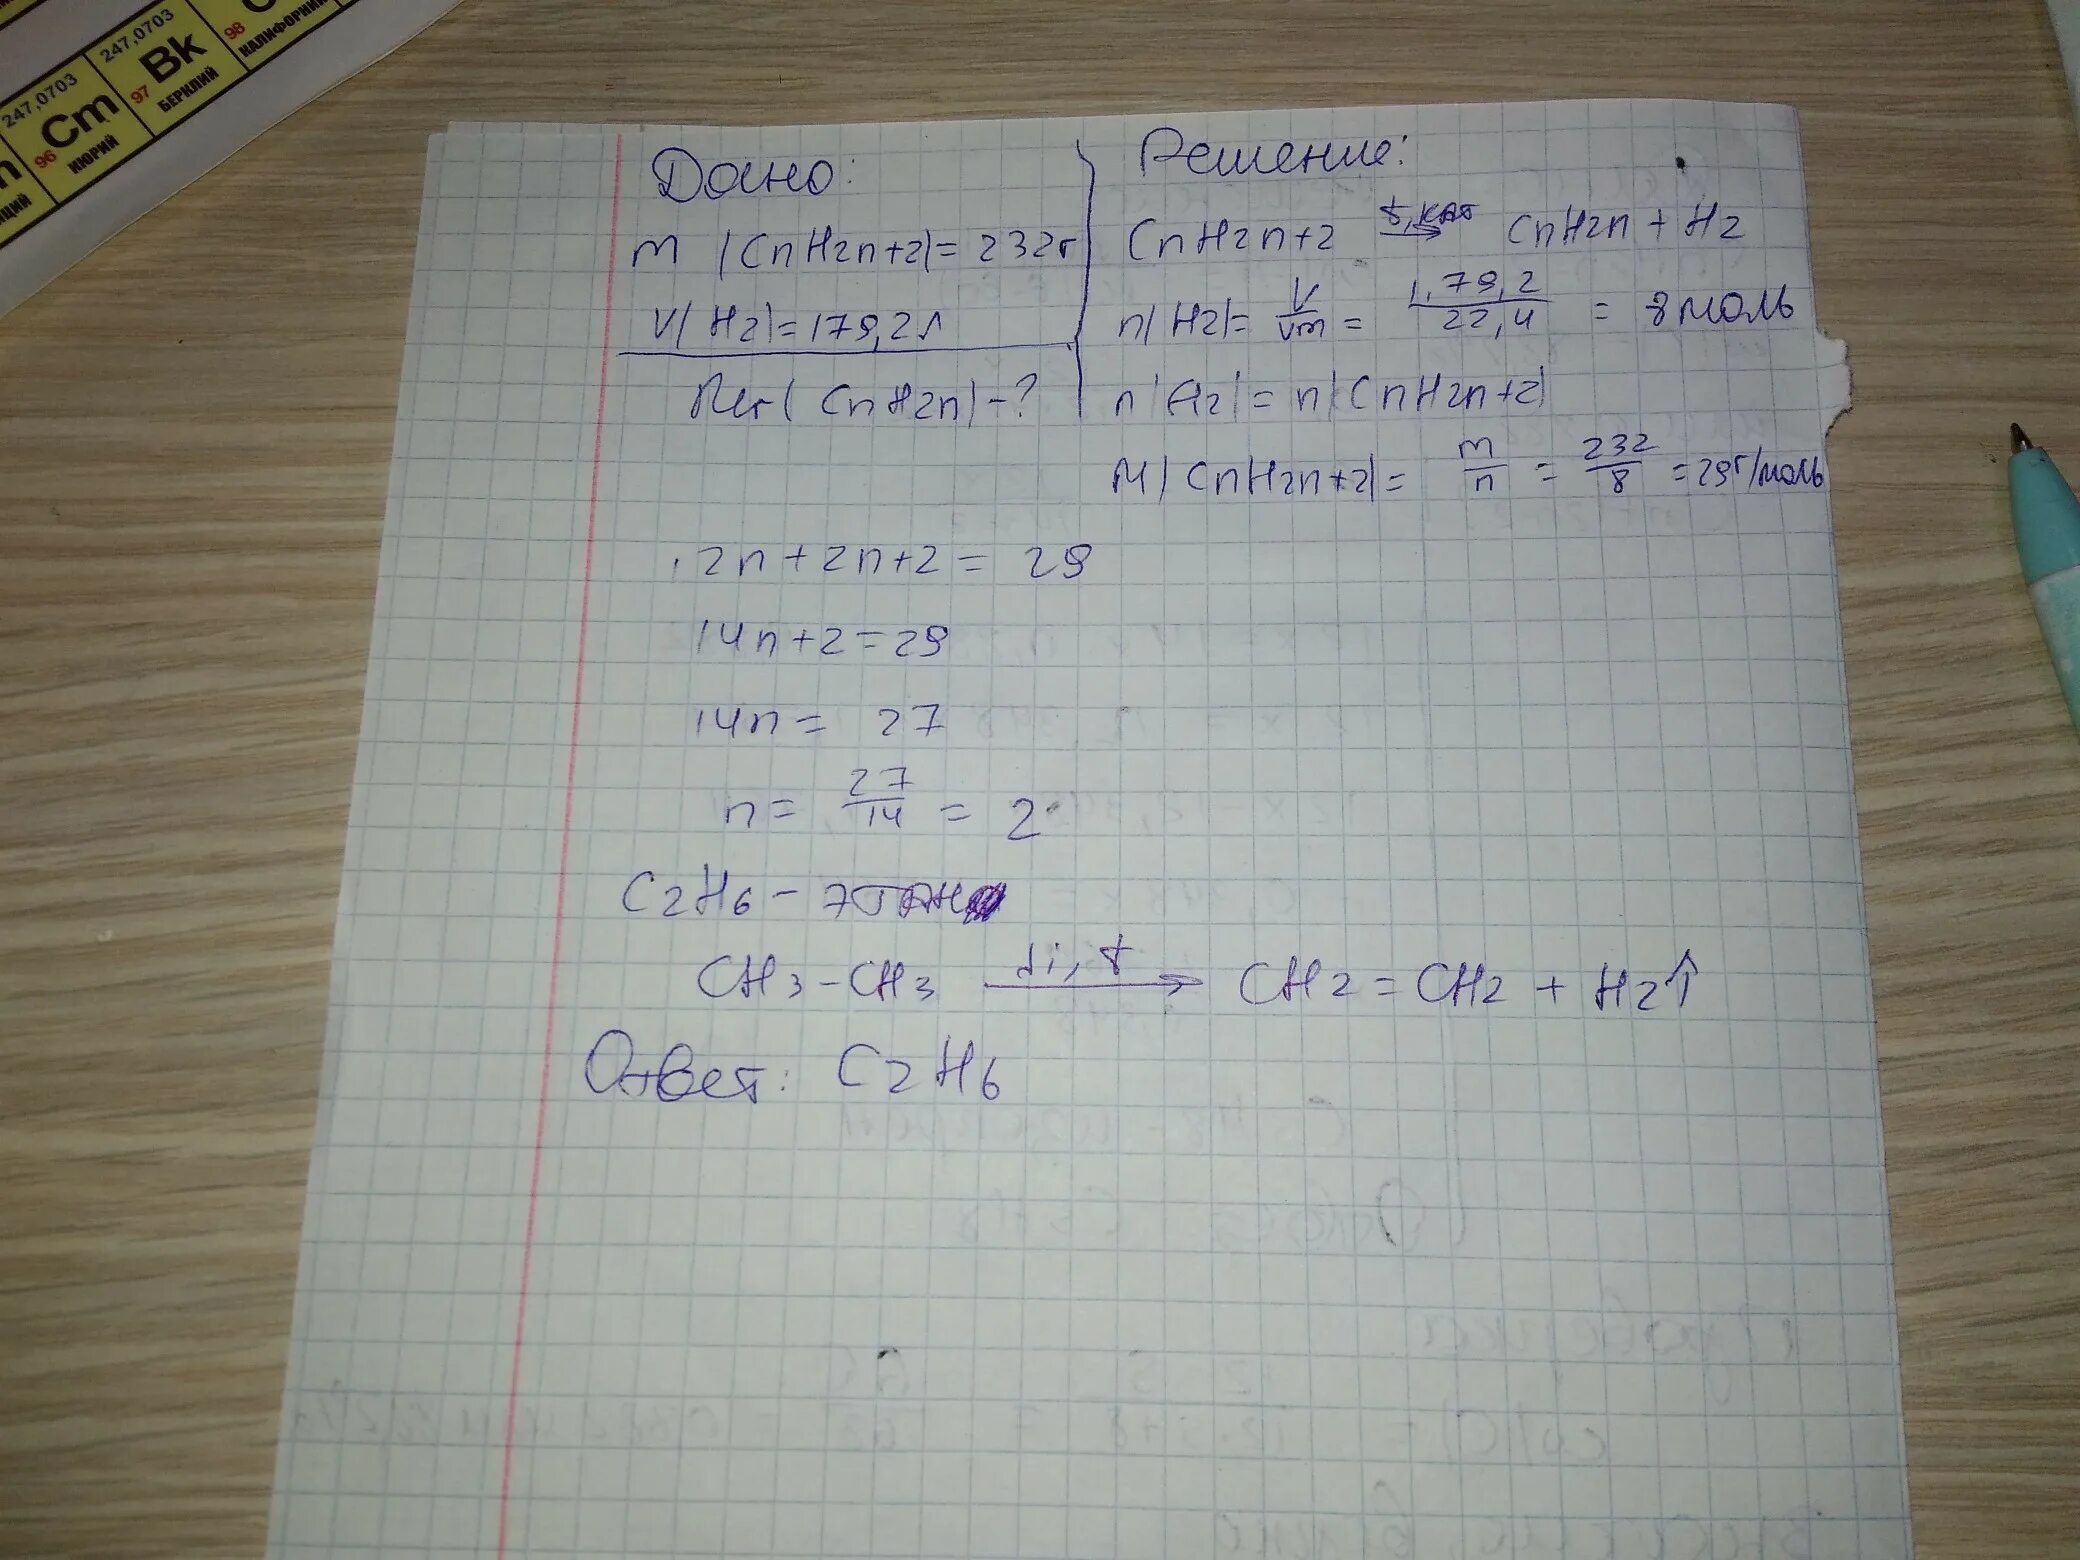 247,0703
Cm
96
КЮРИЙ
247,0703
Bk
97
БЕРКЛИЙ
98
КАЛИФОРНИЙ
Дано:
m (CnH2n+2)=232г
V(H2)=179,2л
(CnH2n)-?
Решение:
CnH2n+2 t,кат → CnH2n+H2
n(H2)= V/Vm = 179,2/22,4 = 8 моль
n(H2)=n(CnH2n+2)
M(CnH2n+2)= m/n = 232/8 =29г/моль
12n+2n+2= 29
14n+2=29
14n= 27
n= 27/14 = 2
C2H6- этан
CH3-CH3 t → CH2=CH2 + H2↑
Ответ: C2H6